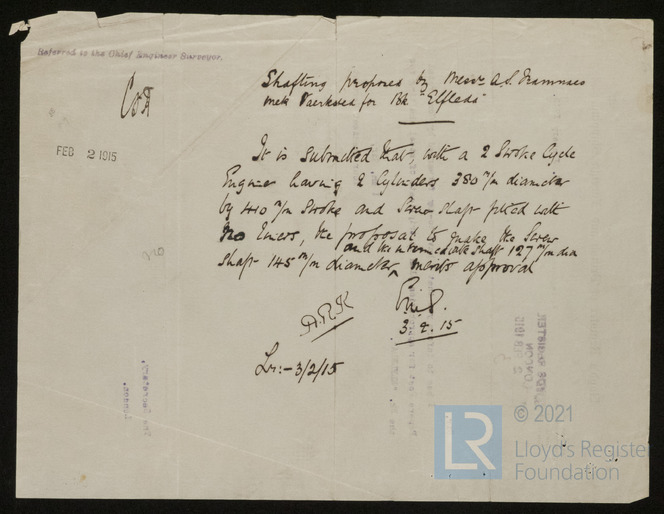 Referred to the Chief Engineer Surveyor.
FEB 2 1915
Shafting proposed by Messrs A.S.
mek Vaerksted for Bk "Elfleda"
It is submitted that, with a 2 Stroke Cycle
Engine having 2 Cylinders 380 m/m diameter
by 410 m/m Stroke and Screw shaft fitted with
no liners, the proposal to make the Screw
and the intermediate shaft 127 m/m dia
shaft 145 m/m diameter, merits approval
3.2.15
Lr:- 3/2/15
The Secretary,
London.
LONDON
1915
© 2021
LR
Lloyd's Register
Foundation